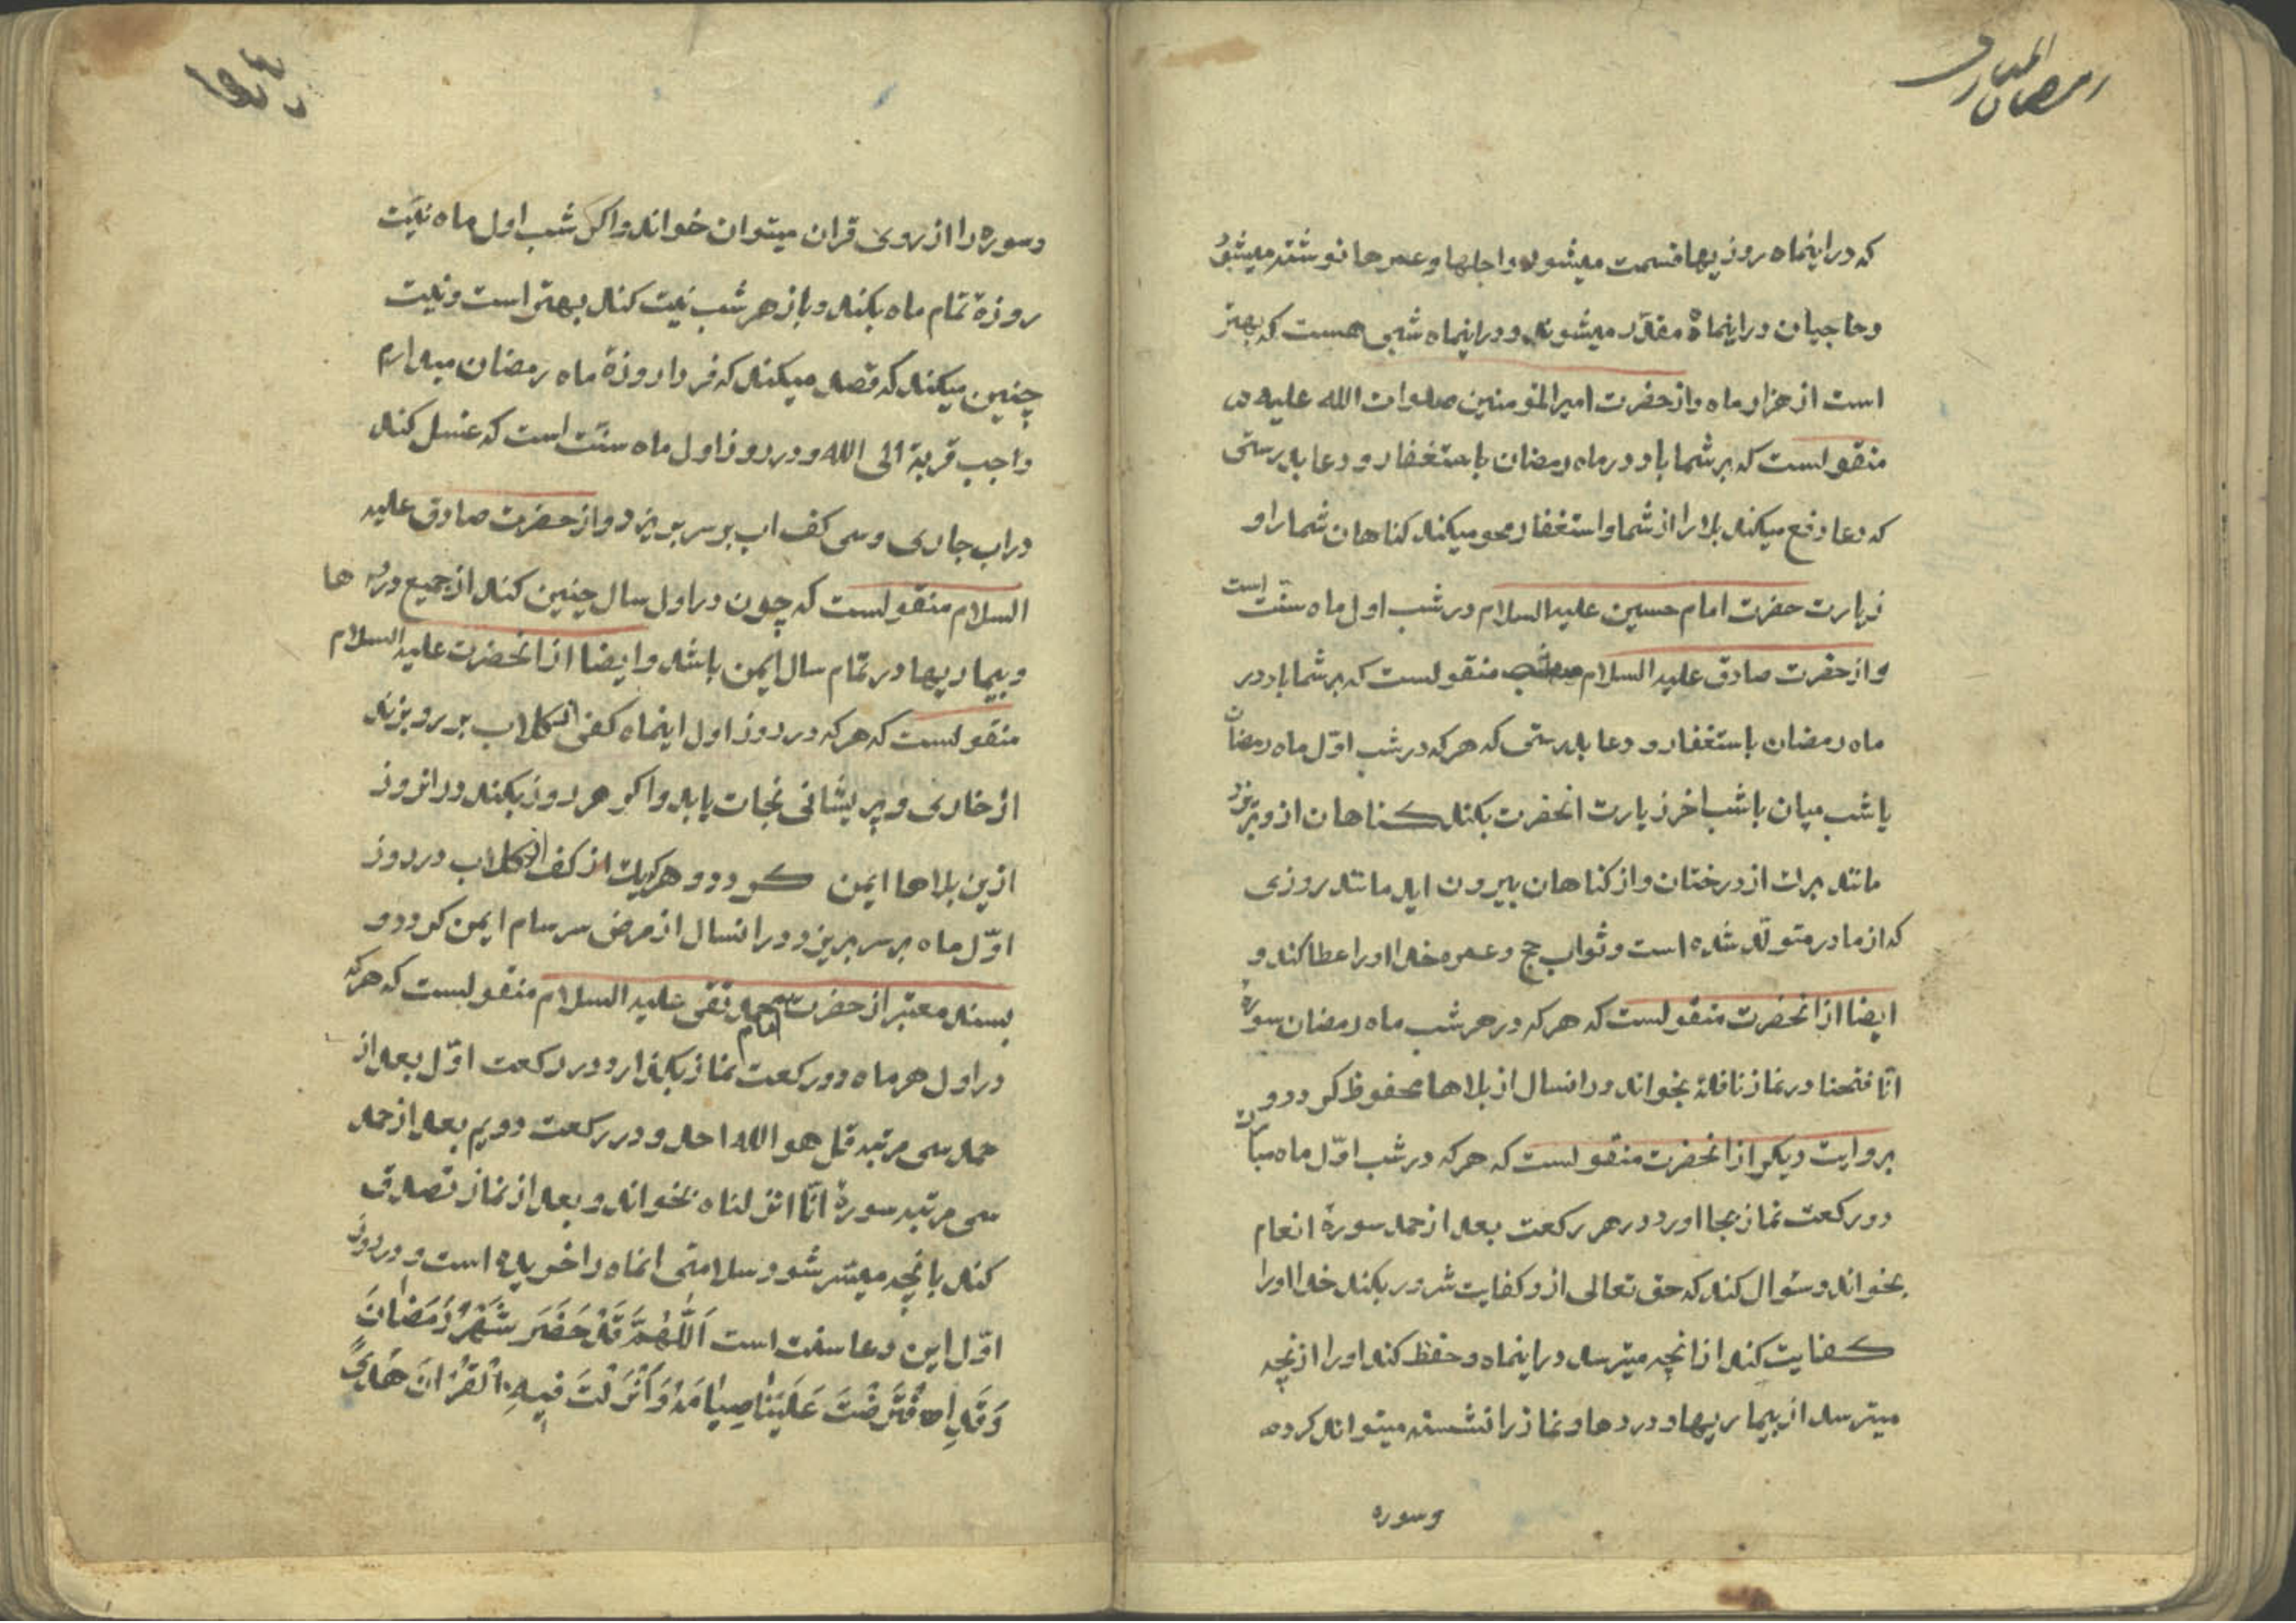 رمضان المبارک
که دراینماه روزیها قسمت میشود واجلها وعمرها نوشته میشود
وحاجیان دراینماه مقدّر میشوند ودراینماه شبی هست که بهتر
است از هزار ماه واز حضرت امیرالمؤمنین صلوات الله علیه
منقولست که بر شما باد در ماه رمضان باستغفار و دعا بدرستی
که دعا دفع میکند بلا را از شما واستغفار محو میکند کناهان شما را و
زیارت حضرت امام حسین علیه السلام در شب اول ماه سنّت است
واز حضرت صادق علیه السلام منقولست که بر شما باد در
ماه رمضان باستغفار و دعا بدرستی که هرکه در شب اوّل ماه رمضان
یا شب میان یا شب اخر زیارت انحضرت بکند کناهان ازو بریزد
مانند برک از درختان واز کناهان بیرون اید مانند روزی
که از مادر متولّد شده است وثواب حج وعمره خدا اورا عطا کند و
ایضا از انحضرت منقولست که هرکه در هر شب ماه رمضان سورهٔ
انّا فتحنا در نماز نافله بخواند درانسال از بلاها محفوظ کردد و
بروایت دیکر از انحضرت منقولست که هرکه در شب اوّل ماه مبارک
دو رکعت نماز بجا اورد در هر رکعت بعد از حمد سورهٔ انعام
بخواند وسؤال کند که حق تعالی ازو کفایت شرور بکند خدا اورا
کفایت کند از انچه میترسد دراینماه وحفظ کند اورا از نچه
میترسد از بیماریها ودردها ونماز را نشسته میتواند کرد
وسوره
وسوره را از روی قران میتوان خواند واکر شب اول ماه نیّت
روزهٔ تمام ماه بکند وباز هر شب نیت کند بهتر است ونیت
چنین میکند که قصد میکند که فردا روزهٔ ماه رمضان میدارم
واجب قربة الی الله ودر روز اول ماه سنّت است که غسل کند
دراب جاری وسی کف اب بر سر بریزد واز حضرت صادق علیه
السلام منقولست که چون در اول سال چنین کند از جمیع دردها
وبیماریها در تمام سال ایمن باشد وایضا از انحضرت علیه السلام
منقولست که هرکه در روز اول اینماه کفی از کلاب بر رو بزند
از خاری وپریشانی نجات یابد واکر هر روز بکند درانروز
ازین بلاها ایمن کردد وهرکه یک کف از کلاب در روز
اوّل ماه بر سر بریزد درانسال از مرض سرسام ایمن کردد و
بسند معتبر از حضرت امام محمد تقی علیه السلام منقولست که هرکه
در اول هر ماه دو رکعت نماز بکذارد در رکعت اوّل بعد از
حمد سی مرتبه قل هو الله احد ودر رکعت دویم بعد از حمد
سی مرتبه سورهٔ انّا انزلناه بخواند وبعد از نماز تصدق
کند بانچه میسّر شود سلامتی انماه را خریده است ودر روز
اوّل این دعا سنت است اَللّٰهُمَّ قَدْ حَضَرَ شَهْرُ رَمَضٰانَ
وَقَدِ افْتَرَضْتَ عَلَیْنٰا صِیٰامَهُ وَاَنْزَلْتَ فِیهِ الْقُرْانَ هُدًی